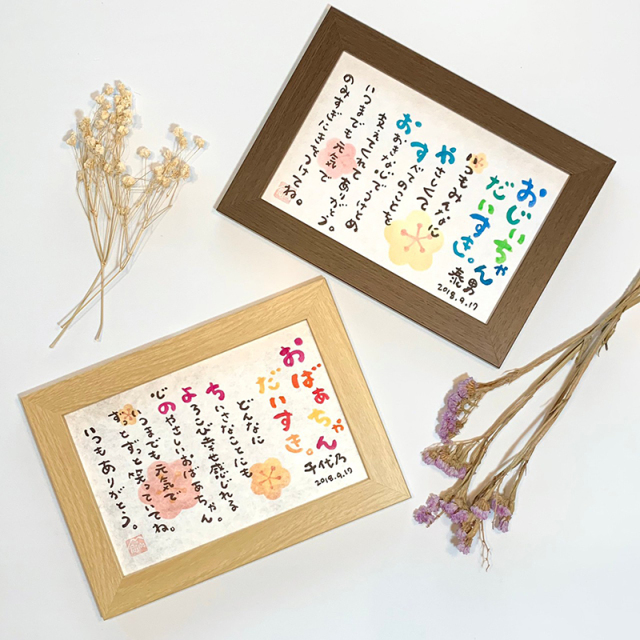 おじいちゃん
だいすき。
泰男
2018.9.17
いつもみんなに
やさしくて
すべてのことを
おおきな心でうけとめ
支えてくれてありがとう。
いつまでも元気で
のみすぎにきをつけてね。
おばぁちゃん
だいすき。
千代乃
2018.9.17
どんなに
ちいさなことにも
よろこび幸せ感じれる
心のやさしいおばあちゃん。
いつまでも元気で
ずっとずっと笑っていてね。
いつもありがとう。